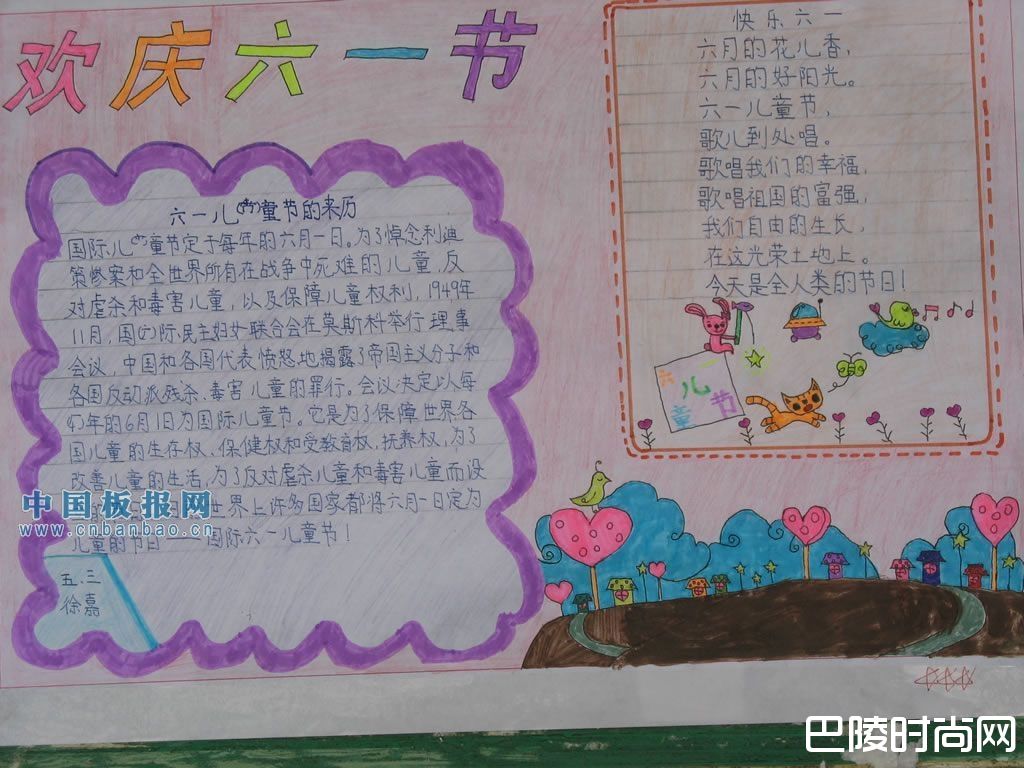 欢庆六一节
六一儿童节的来历
国际儿童节定于每年的六月一日。为了悼念利迪
策惨案和全世界所有在战争中死难的儿童,反
对虐杀和毒害儿童,以及保障儿童权利,1949年
11月,国际民主妇女联合会在莫斯科举行理事
会议,中国和各国代表愤怒地揭露了帝国主义分子和
各国反动派残杀、毒害儿童的罪行。会议决定以每
年的6月1日为国际儿童节。它是为了保障世界各
国儿童的生存权、保健权和受教育权,抚养权,为了
改善儿童的生活,为了反对虐杀儿童和毒害儿童而设
世界上许多国家都将六月一日定为
儿童的节日——国际六一儿童节!
五.三
徐嘉
快乐六一
六月的花儿香,
六月的好阳光。
六一儿童节,
歌儿到处唱。
歌唱我们的幸福,
歌唱祖国的富强,
我们自由的生长,
在这光荣土地上。
今天是全人类的节日!
六一儿童节
中国板报网
www.cnbanbao.cn
巴陵时尚网